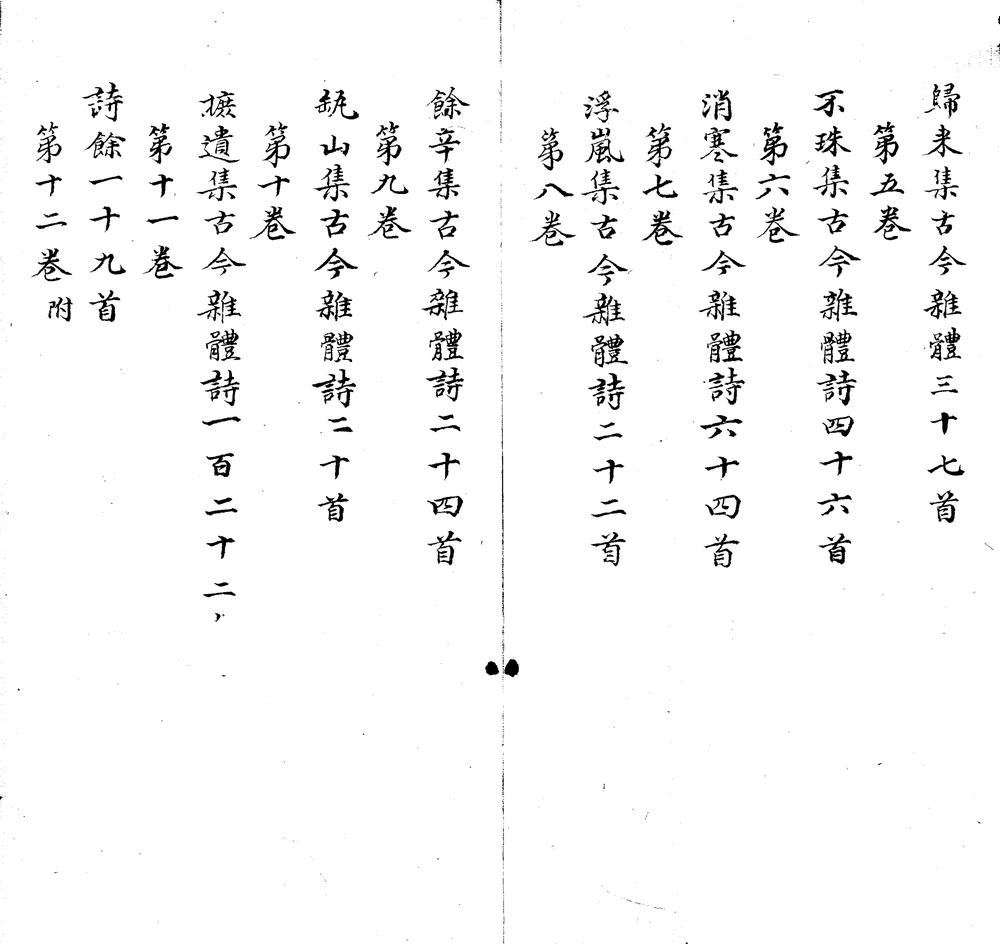 歸来集古今雜體三十七首
第五卷
不珠集古今雜體詩四十六首
第六卷
消寒集古今雜體詩六十四首
第七卷
浮嵐集古今雜體詩二十二首
第八卷
餘辛集古今雜體詩二十四首
第九卷
瓻山集古今雜體詩二十首
第十卷
摭遺集古今雜體詩一百二十二
第十一卷
詩餘一十九首
第十二卷附